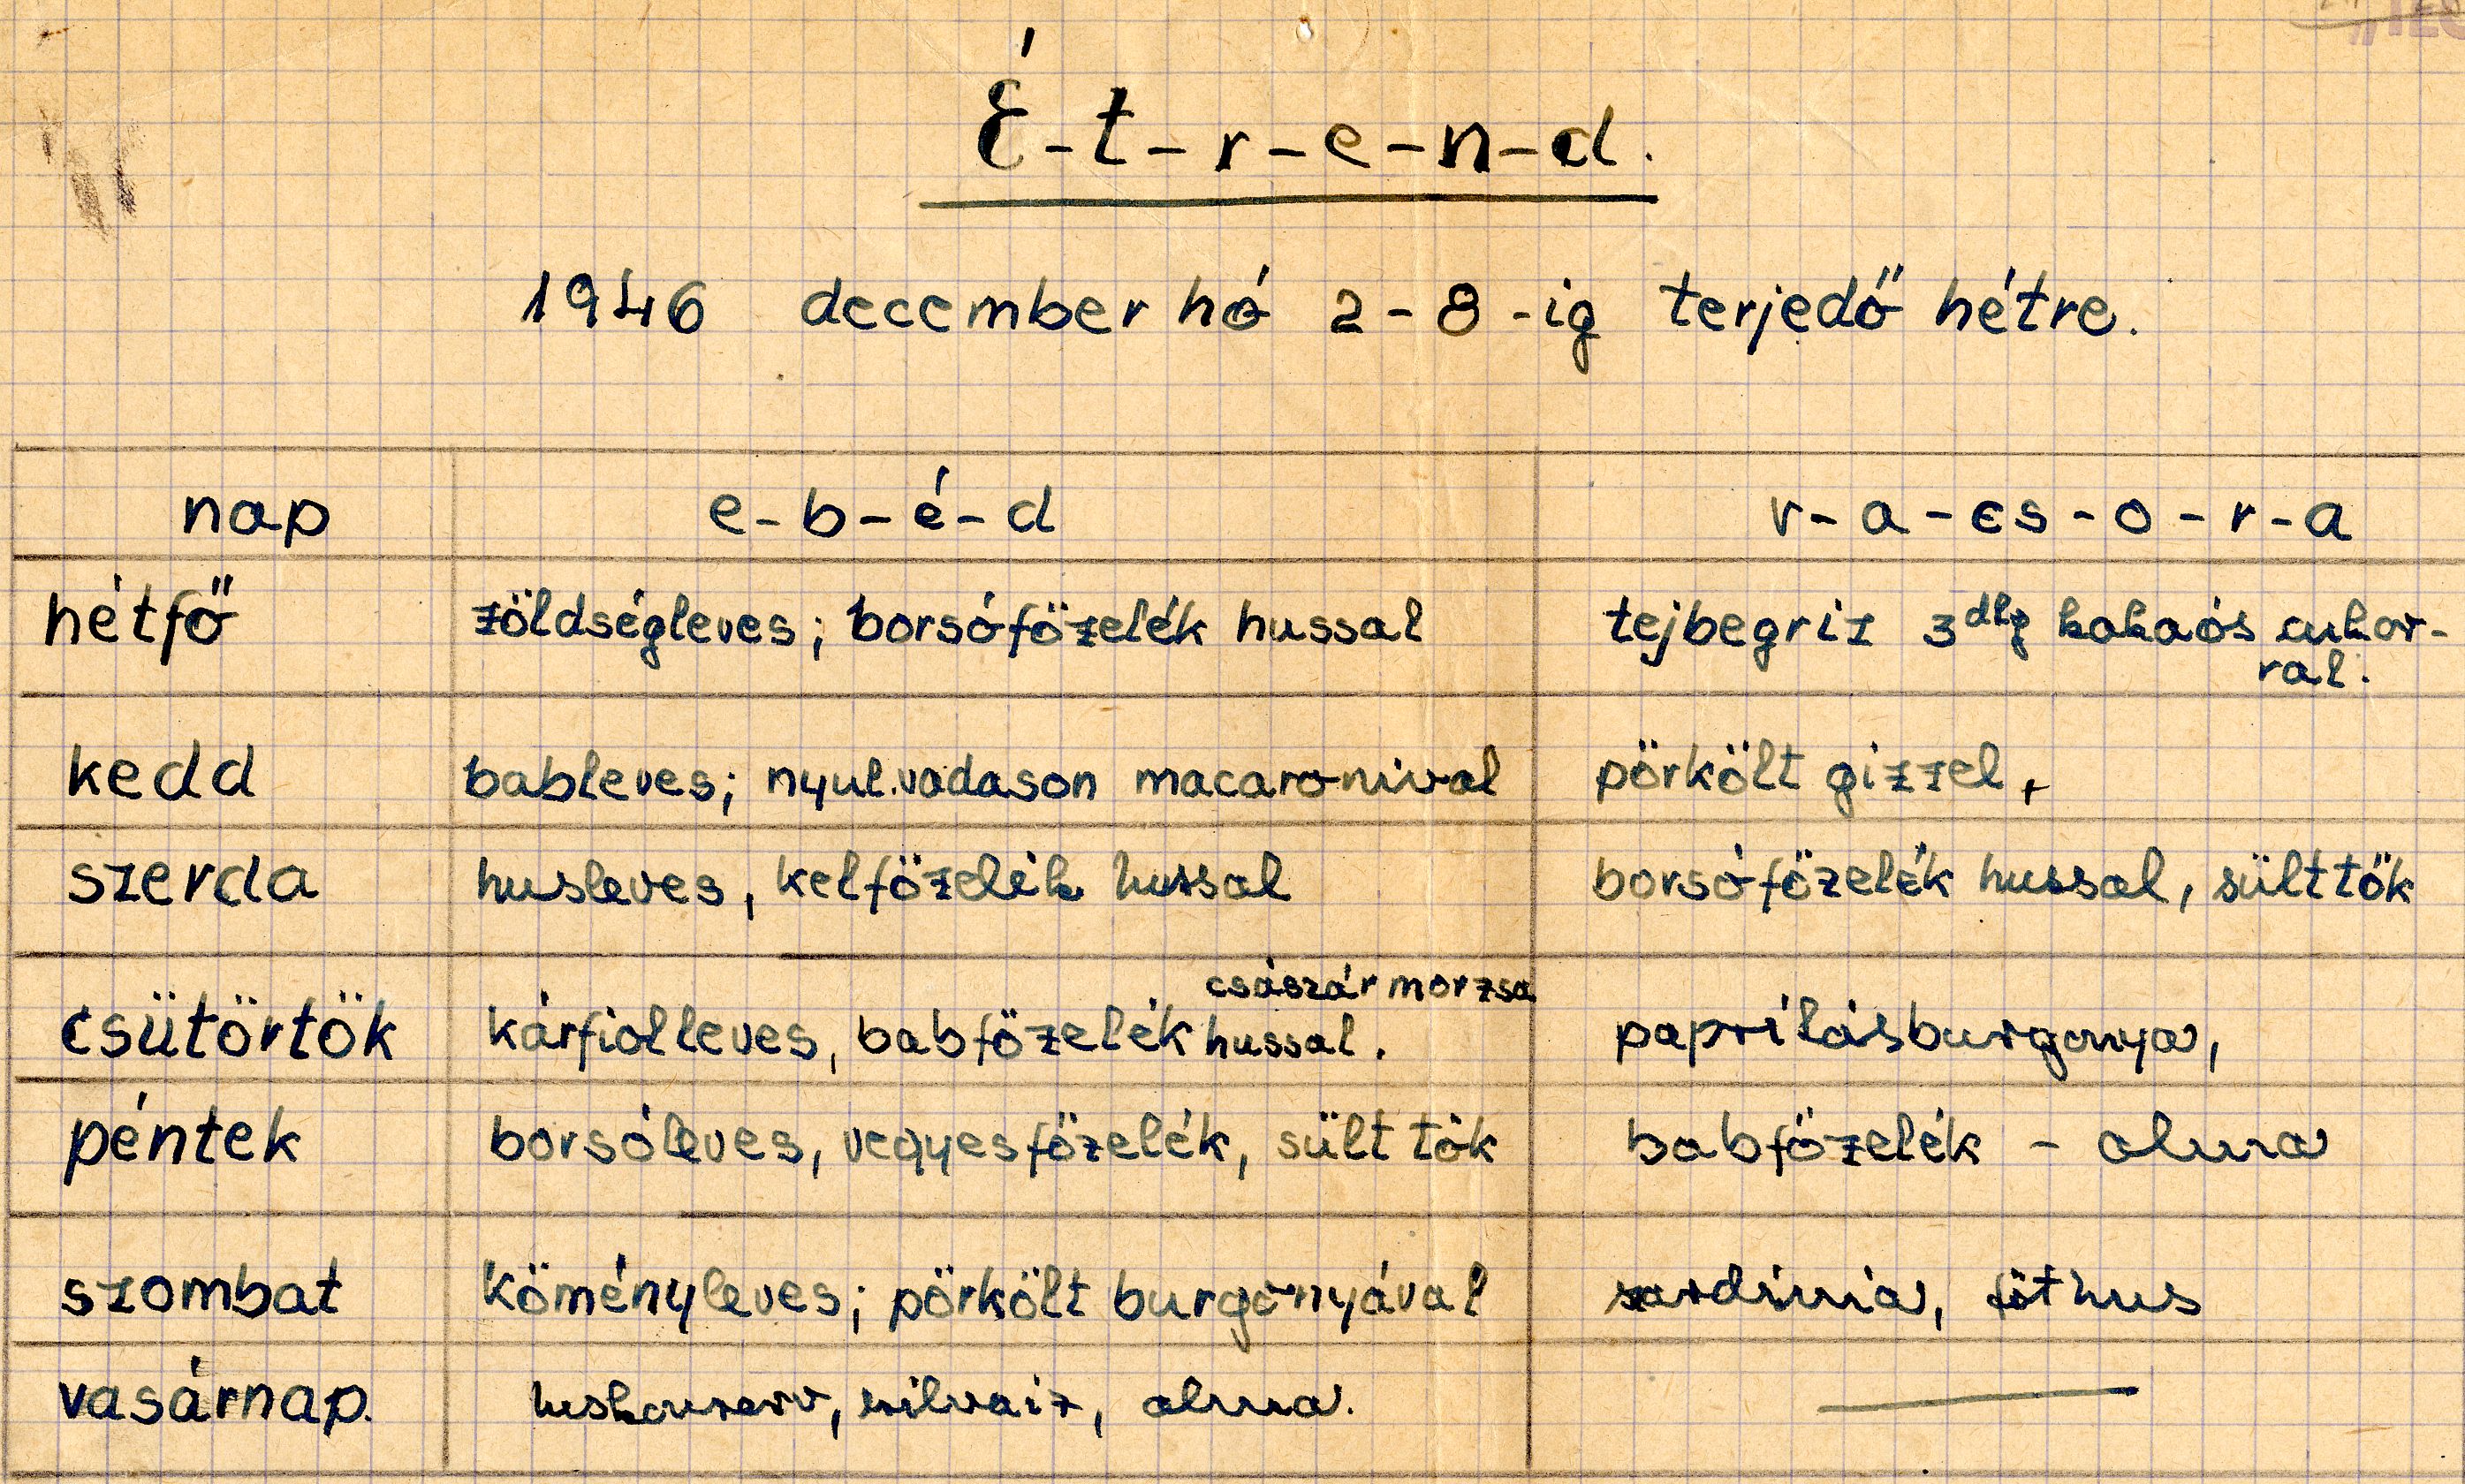 É-t-r-e-n-d.
1946 december hó 2-8-ig terjedő hétre.
nap e-b-é-d v-a-cs-o-r-a
hétfő zöldségleves; borsófözelék hussal tejbegriz 3 dkg kakaós cukor-
ral.
kedd bableves; nyul.vadason macaronival pörkölt gizzel,
szerda husleves, kelfözelék hussal borsófözelék hussal, sülttök
császármorzsa
csütörtök kárfiolleves, babfözelék hussal. paprikásburgonya,
péntek borsóleves, vegyesfözelék, sült tök babfözelék - alma
szombat köményleves; pörkölt burgonyával sardinia, föthus
vasárnap. huskonzerv, szilvaiz, alma.